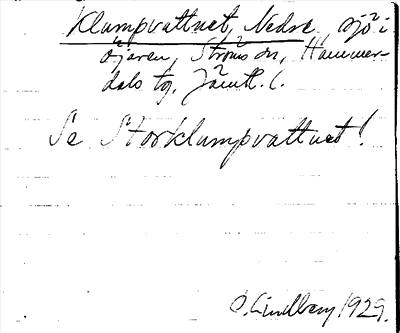 Klumpvattnet, Nedre, sjö i
Öjaren, Ströms sn, Hammer-
dals tg. Jämtl. l.
Se Storklumpvattnet!
O. Lindberg 1929.